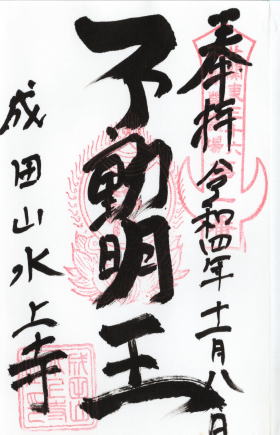 奉拝 令和四年十一月八日
不動明王
成田山水上寺